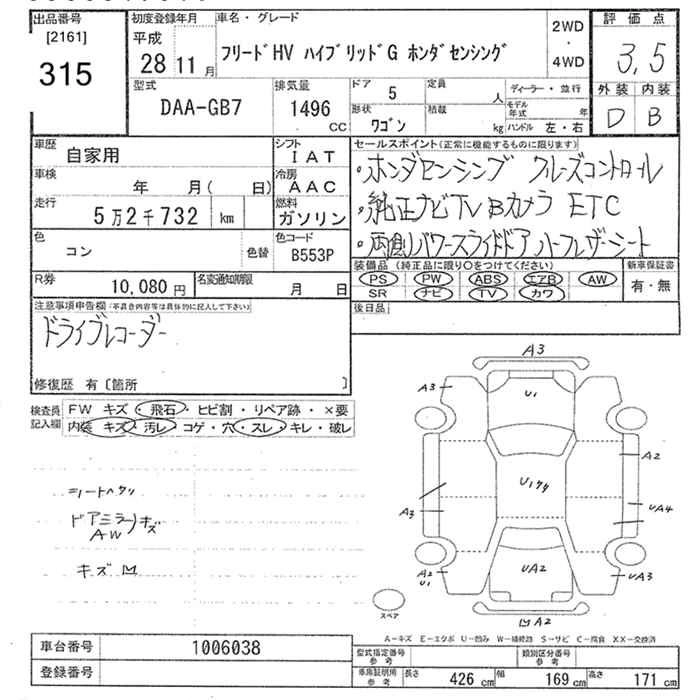 出品番号
[2161]
315
初度登録年月
平成
28 11 月
車名・グレード
フリードHV ハイブリッドG ホンダセンシング
2WD
・
4WD
評価点
3,5
外装 内装
D B
型式
DAA-GB7
排気量
1496
CC
ドア
5
定員
人
ディーラー・並行
形状
ワゴン
積載
kg
モデル年式
年
ハンドル 左・右
車歴
自家用
シフト
IAT
車検
年 月( 日)
冷房
AAC
走行
5万2千732 km
燃料
ガソリン
色
コン
色替
色コード
B553P
R券
10,080 円
名変通知期限
月 日
セールスポイント(正常に機能するものに限ります)
・ホンダセンシング クルーズコントロール
・純正ナビTV Bカメラ ETC
・両側パワースライドドア ハーフレザーシート
装備品 (純正品に限り○をつけてください)
PS PW ABS エアB AW
SR ナビ TV カワ
新車保証書
有・無
後日品
注意事項申告欄(不具合内容等は具体的に記入して下さい)
ドライブレコーダー
修復歴 有〔箇所 〕
検査員
記入欄
FW キズ・飛石・ヒビ割・リペア跡・×要
内装 キズ・汚レ・コゲ・穴・スレ・キレ・破レ
シートヘタリ
ドアミラーキズ
AW
キズ凹
A3
A3
U1
A2
Uﾊｸﾘ
A3
UA4
A2
U
UA2
UA3
スペア
凹A2
A-キズ E-エクボ U-凹み W-補修跡 S-サビ C-腐食 XX-交換済
車台番号
1006038
登録番号
型式指定番号
参考
類別区分番号
参考
車庫証明用
参考
長さ 426 cm 幅 169 cm 高さ 171 cm